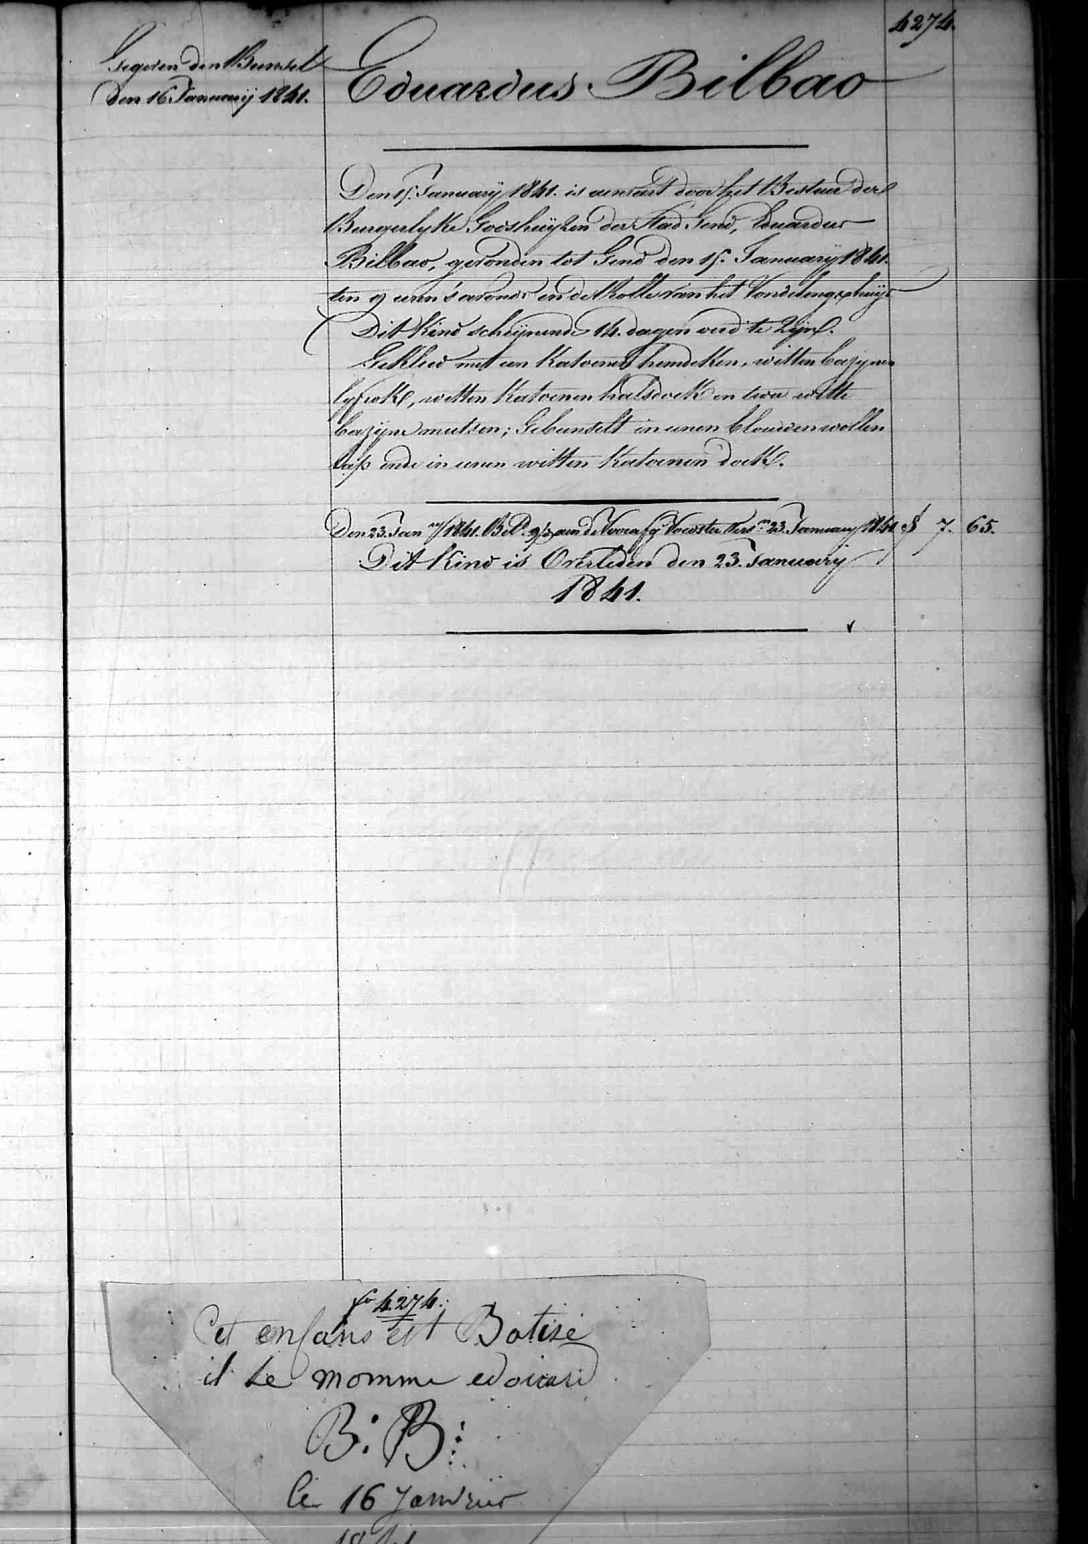 4274.
Gegeven den Bunsel
den 16 Januarij 1841.
Eduardus Bilbao
Den 15. Januarij 1841. is aenvaert door het Bestuer der
Burgerlyke Godshuyzen der Stad Gend, Eduardus
Bilbao, gevonden tot Gend den 15. Januarij 1841.
ten 9 uren 's avonds in de Rolle van het Vondelingshuijs
Dit kind scheijnende 14. dagen oud te zijn.
Gekleed met een katoene hemdeken, witten bazijnen
lyfrok, witten katoenen halsdoek en twee witte
bazijne mutsen; Gebunselt in eenen blauwen wollen
ende in eenen witten katoenen doek.
Den 23. Jan. 1841. aen de Voocafg Voedster 23. January 1841 § 7. 65.
Dit kind is Overleden den 23. January
1841.
fo 4274.
Cet enfans est Batisé
il se nomme edouard
B: B:
Le 16 Janvier
1841